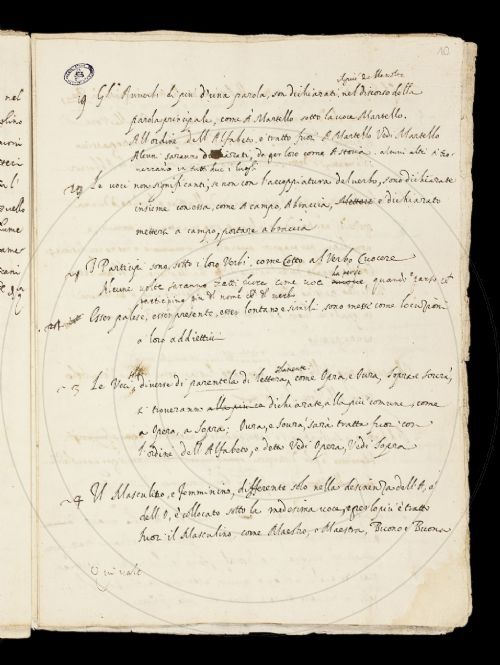 10
19 Gl'Avverbi di più d'una parola, son dichiarati, nel discorso della
parola principale, come A Martello sotto la voce Martello.
All'ordine dell'Alfabeto, è tratto fuor A Martello Vedi Martello
Alcuni saranno dichiarati, da per loro come A stoia. alcuni altri si
in tutti due i luoghi
Le voci non significanti, se non con l'accoppiatura del verbo, sono dichiarate
insieme con essa, come A campo, A braccia, è dichiarato
mettersi a campo, portare a braccia
I Participi sono, sotto i loro Verbi, come Cotto al Verbo Cuocere
Alcune volte saranno tratti fuora come voce da perse quando
participino più di nome che di verbo
Esser palese, esser presente, esser lontano, e simili sono messi come locuzioni
a loro addiettivi
Le Voci, diverse di parentela di lettera, come Opra, e Ovra, Sopra e Sovra,
si troveranno dichiarate, alla più comune, come
a Opera, a Sopra; Ovra, e Sovra, sarà tratta fuor con
l'ordine dell'Alfabeto, e detto Vedi Opera, Vedi Sopra
24 Il Masculino, e Femminino, differente solo nella desinenza dell'A, o
dell'O, è collocato sotto la medesima voce, e per lo più è tratto
fuor il Masculino, come Maestro, e Maestra, Buono e Buona